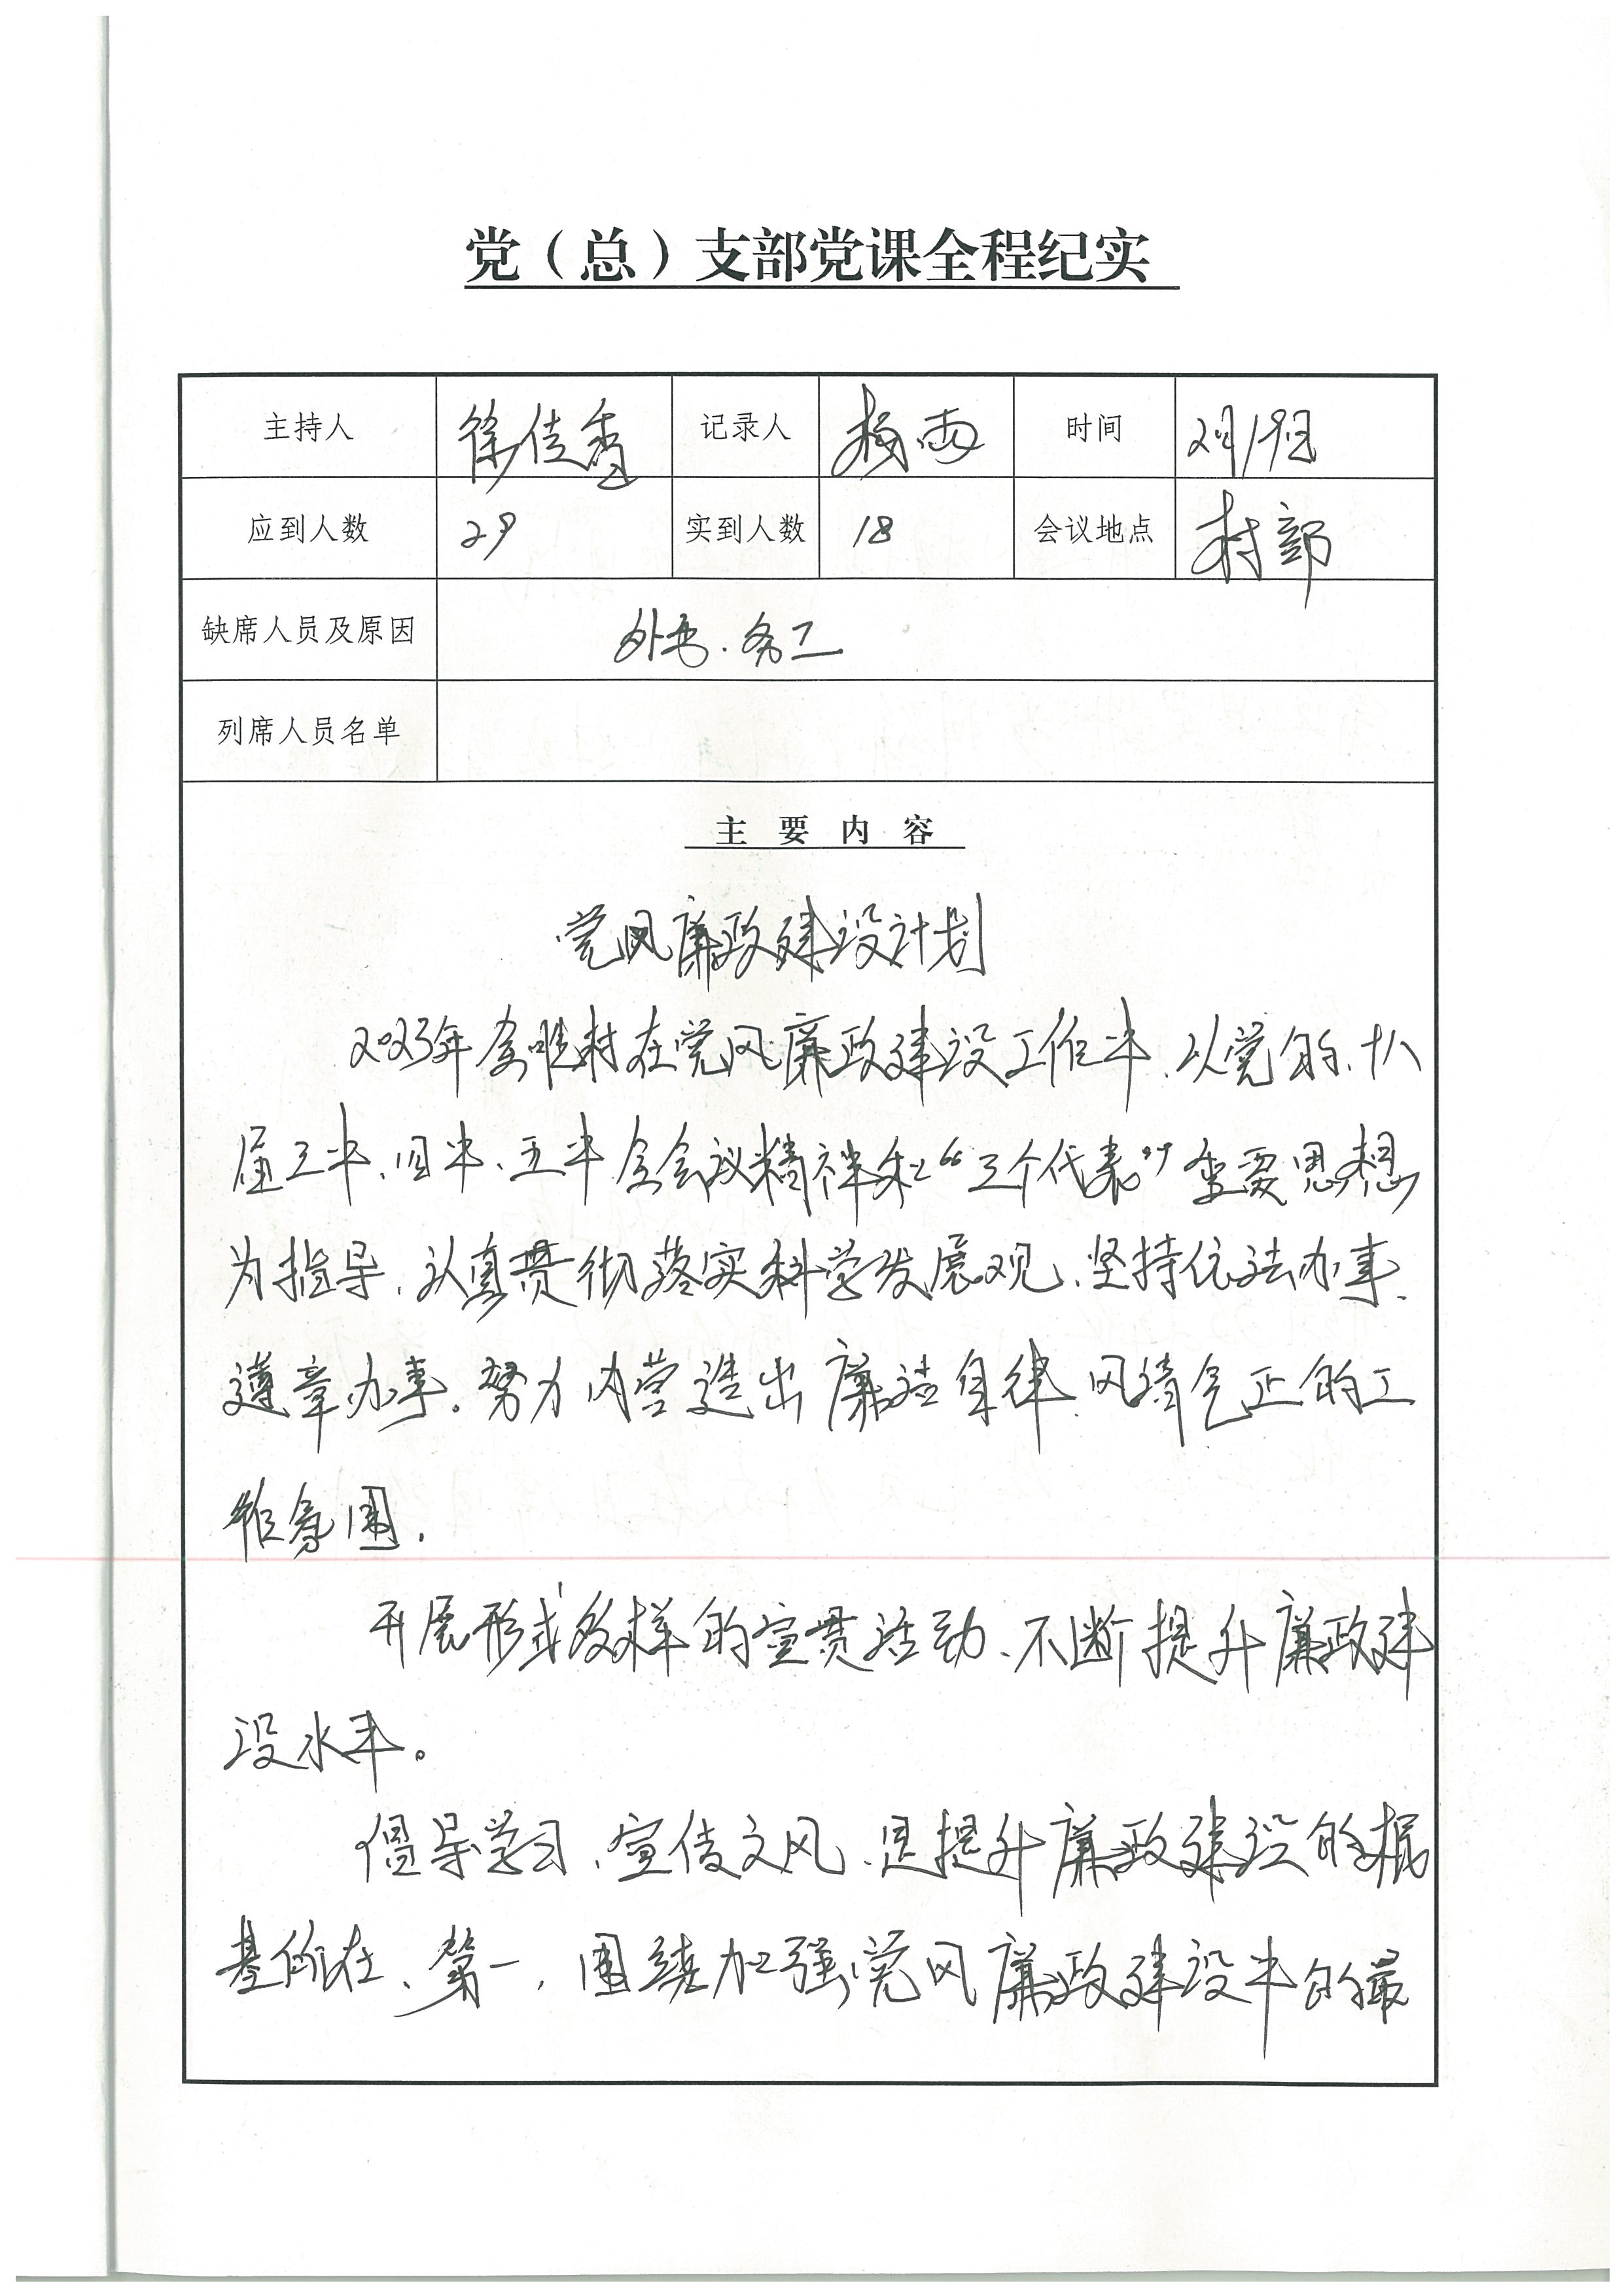 党（总）支部党课全程纪实
主持人 徐佳香 记录人 梅雨 时间 2月19日
应到人数 29 实到人数 18 会议地点 村部
缺席人员及原因 外出、务工
列席人员名单
主要内容
党风廉政建设计划
2023年 村在党风廉政建设工作中、以党的、十八
届三中、四中、五中全会议精神和“三个代表”重要思想
为指导、认真贯彻落实科学发展观、坚持依法办事、
遵章办事。努力内营造出廉洁自律、风清气正的工
作氛围.
开展形式多样的宣贯活动、不断提升廉政建
设水平。
倡导学习、宣传文风、是提升廉政建设的根
基所在、第一，围绕加强党风廉政建设中的最